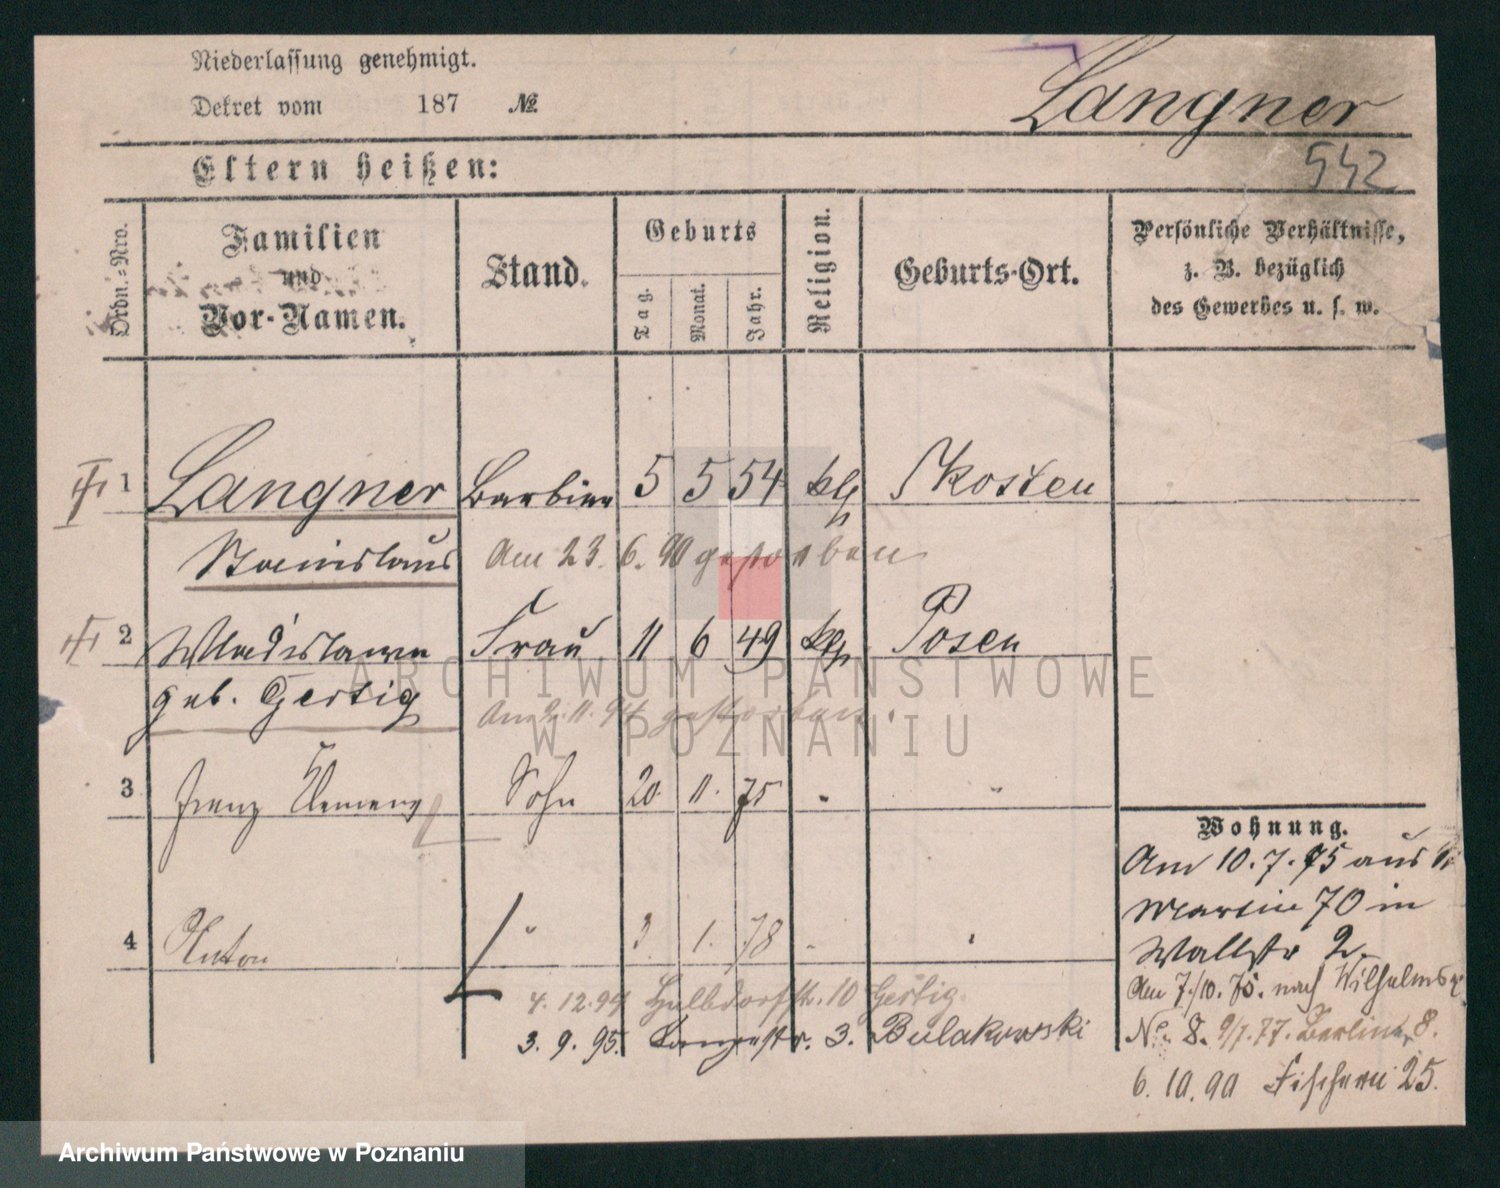 Niederlassung genehmigt.
Dekret vom 187 №
Langner
542
Eltern heißen:
Ordn.-Nro.
Familien
und
Vor-Namen.
Stand.
Geburts
Tag.
Monat.
Jahr.
Religion.
Geburts-Ort.
Persönliche Verhältnisse,
z. B. bezüglich
des Gewerbes u. s. w.
1 Langner Barbier 5 5 54 kth Kosten
Stanislaus Am 23. 6. 90 gestorben
2 Wladislawa Frau 11 6 49 kth Posen
geb. Gertig
Am 2. 11. 94 gestorben.
3 Franz Klemens Sohn 20. 11. 75 "
4 Anton " 3 1. 78
4. 12. 94 Halbdorfstr. 10 Gertig.
3. 9. 95. Langestr. 3. Bulakowski
Wohnung.
Am 10. 7. 75 aus St.
Martin 70 in
Wallstr 2.
Am 7./10. 75. nach Wilhelmspl
No. 8. 9/7. 77. Berliner 8.
6. 10. 90 Fischerei 25.
ARCHIWUM PAŃSTWOWE
W POZNANIU
Archiwum Państwowe w Poznaniu